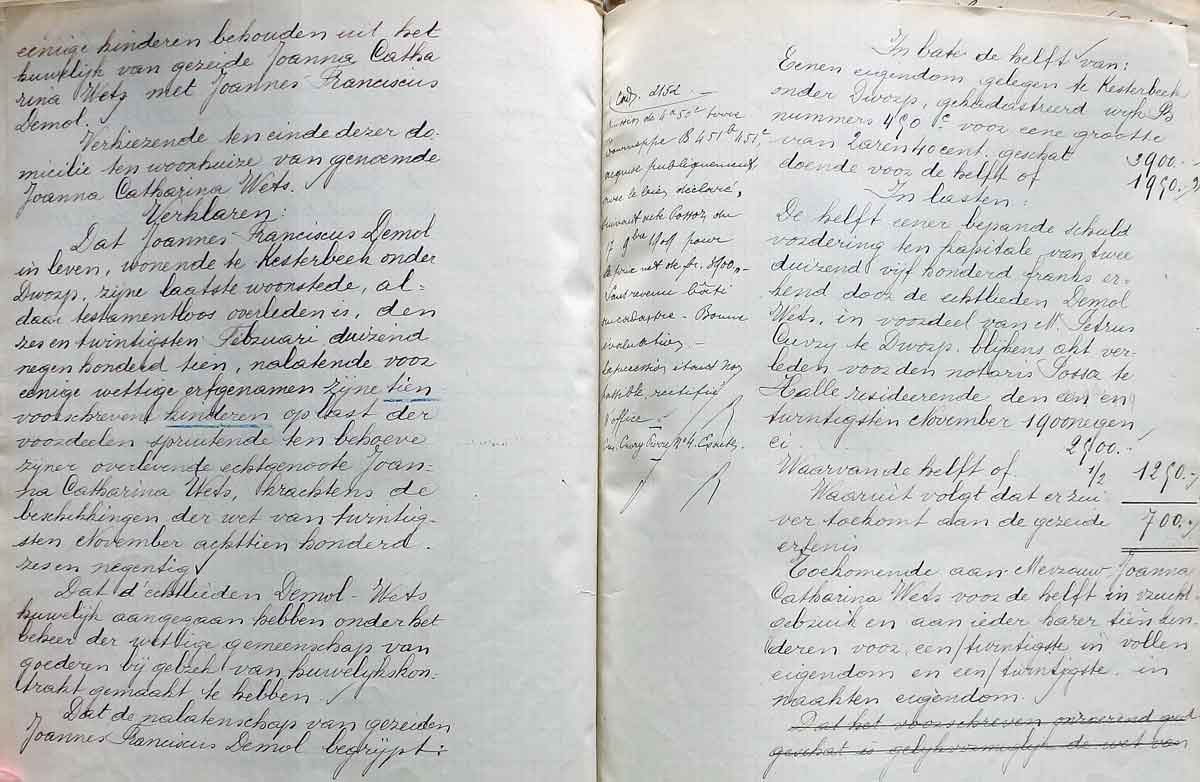 eenige kinderen behouden uit het
huwelijk van gezeide Joanna Catha
rina Wets met Joannes Franciscus
Demol.
Verkiezende ten einde dezer do-
micilie ten woonhuize van genoemde
Joanna Catharina Wets.
Verklaren:
Dat Joannes Franciscus Demol
in leven, wonende te Kesterbeek onder
Dworp, zijne laatste woonstede, al-
daar testamentloos overleden is, den
zes en twintigsten Februari duizend
negen honderd tien, nalatende voor
eenige wettige erfgenamen zijne tien
voorschreven kinderen op last der
voordeelen spruitende ten behoeve
zijner overlevende echtgenoote Joan-
na Catharina Wets, krachtens de
beschikkingen der wet van twintig-
sten November achttien honderd
zes en negentig
Dat d'echtlieden Demol-Wets
huwelijk aangegaan hebben onder het
beheer der wettige gemeenschap van
goederen bij gebrek van huwelijkskon-
trakt gemaakt te hebben.
Dat de nalatenschap van gezeiden
Joannes Franciscus Demol begrijpt:
Cad. 2152
B 451
publiquement
avec le bien déclaré,
1909 pour
le prix net de fr. 3900,-
Sans revenu bâti
au cadastre - Bonne
évaluation -
rectifié
d'office
In bate de helft van:
Eenen eigendom gelegen te Kesterbeek
onder Dworp, gekadastreerd wijk B
nummers 450 c voor eene grootte
van 2 aren 40 cent, geschat 3900.-
doende voor de helft of 1950.-
In lasten:
De helft eener bepande schuld
vordering ten kapitale van twee
duizend vijf honderd franks er-
kend door de echtlieden Demol
Wets, in voordeel van Mr. Petrus
te Dworp, blijkens akt ver-
leden voor den notaris Possoz te
Halle resideerende den een en
twintigsten November 1900negen
2500.-
Waarvan de helft of 1/2 1250.-
Waaruit volgt dat er zui
ver toekomt aan de gezeide 700.-
erfenis
Toekomende aan Mevrouw Joanna
Catharina Wets voor de helft in vrucht
gebruik en aan ieder harer tiën kin
deren voor een/twintigste in vollen
eigendom en een/twintigste in
naakten eigendom.
Dat het voorschreven onroerend goed
geschat is gelijkvormiglijk de wet van